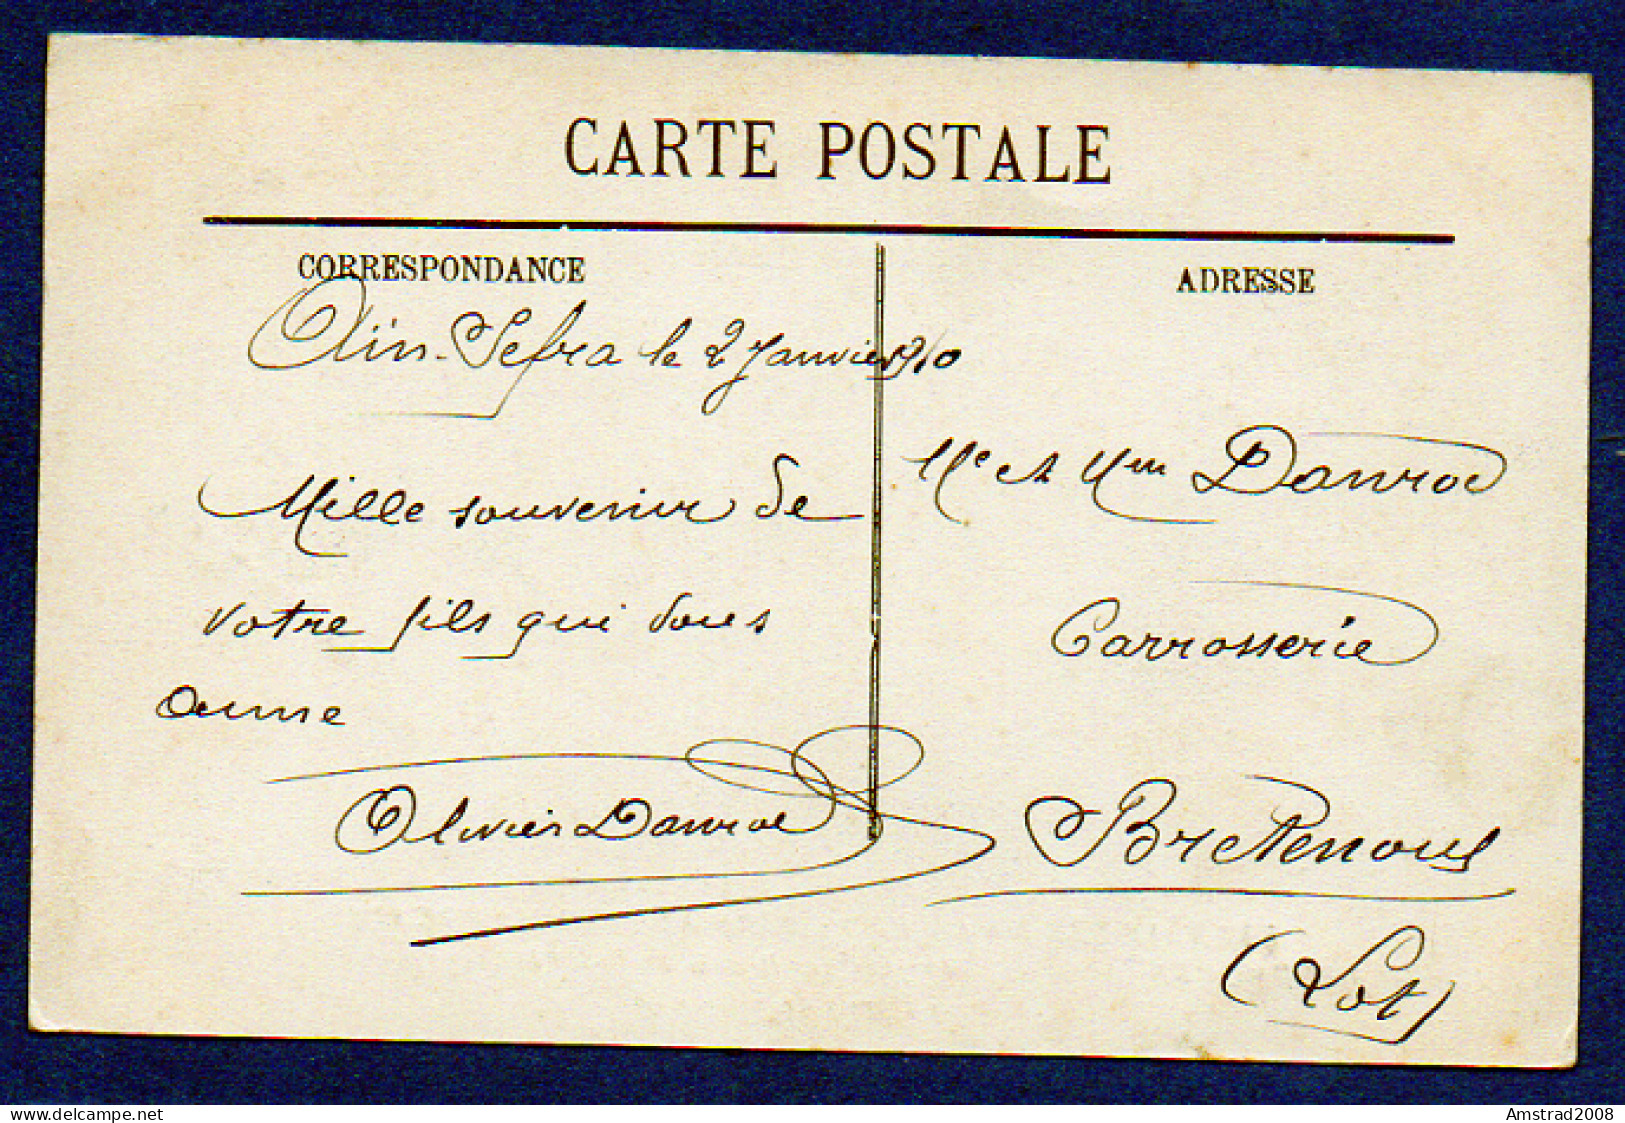 CARTE POSTALE
CORRESPONDANCE
Aïn-Sefra le 2 Janvier 1910
Mille souvenir de
votre fils qui vous
aime
Olivier Danroc
ADRESSE
Mr et Mme Danroc
Carrosserie
Bretenoux
(Lot)
delcampe.net
Amstrad2008